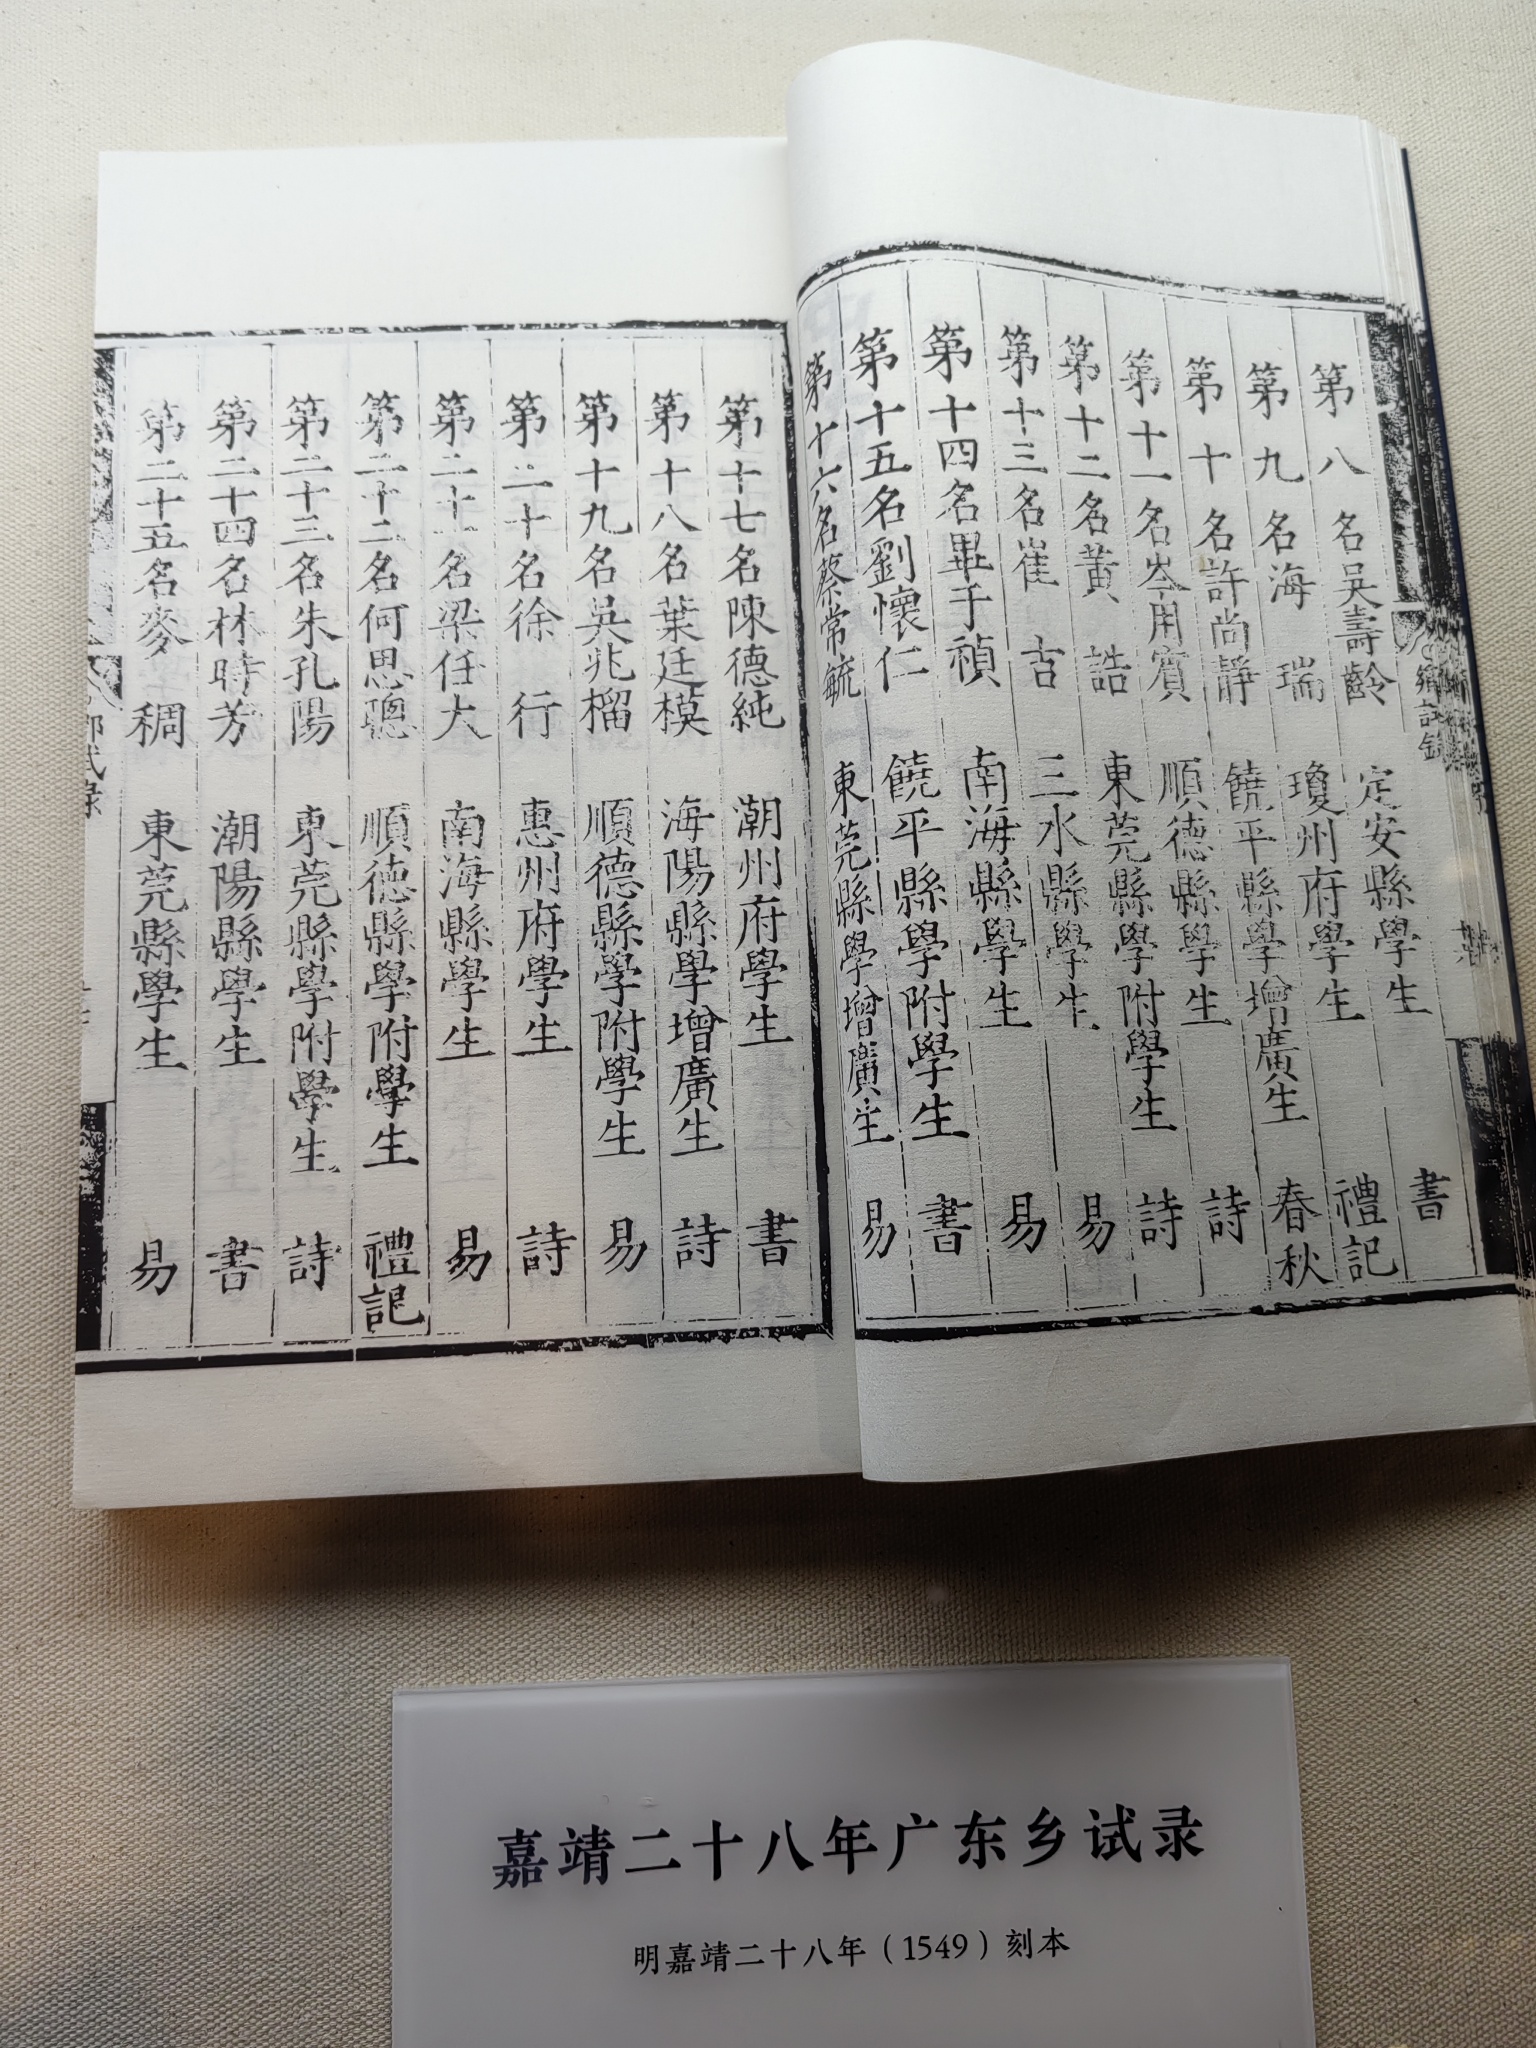 第八名吳壽齡 定安縣學生 書
第九名海瑞 瓊州府學生 禮記
第十名許尚靜 饒平縣學增廣生 春秋
第十一名岑用賓 順德縣學生 詩
第十二名黃誥 東莞縣學附學生 詩
第十三名崔吉 三水縣學生 易
第十四名畢于禎 南海縣學生 易
第十五名劉懷仁 饒平縣學附學生 書
第十六名蔡常毓 東莞縣學增廣生 易
第十七名陳德純 潮州府學生 書
第十八名葉廷模 海陽縣學增廣生 詩
第十九名吳兆榴 順德縣學附學生 易
第二十名徐行 惠州府學生 詩
第二十一名梁任大 南海縣學生 易
第二十二名何思聰 順德縣學附學生 禮記
第二十三名朱孔陽 東莞縣學附學生 詩
第二十四名林時芳 潮陽縣學生 書
第二十五名麥稠 東莞縣學生 易
嘉靖二十八年广东乡试录
明嘉靖二十八年（1549）刻本